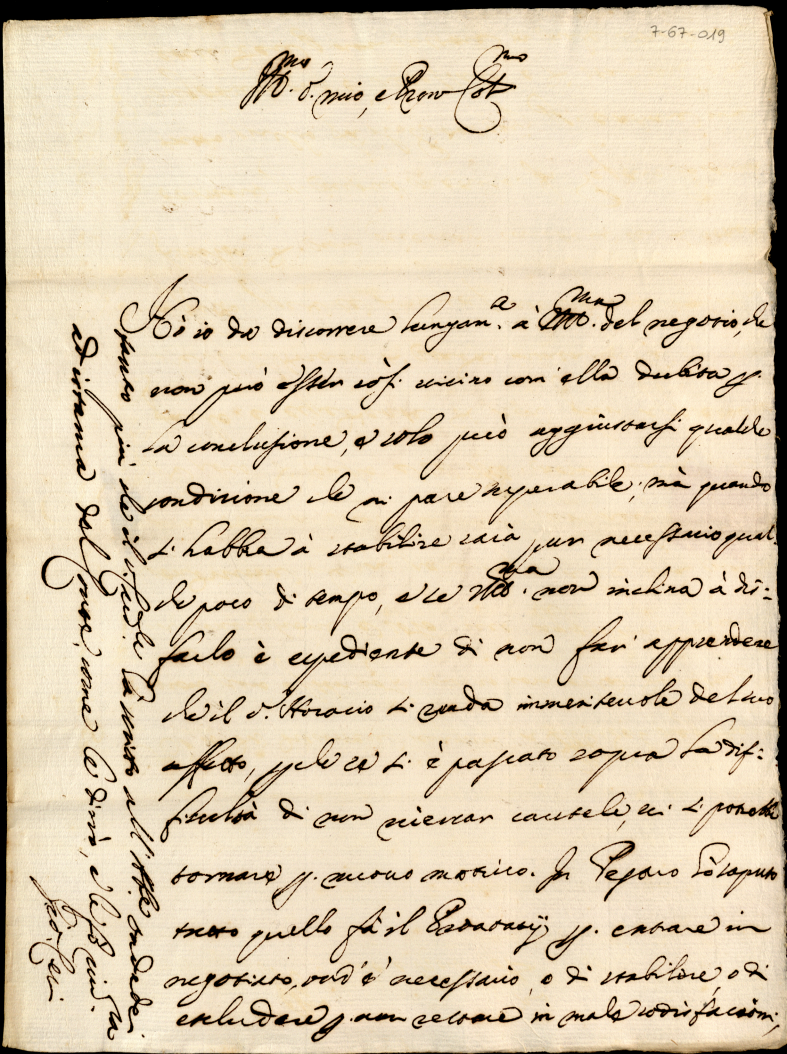 7-67-019
Ill.mo S. mio, e Pron Col.mo
Hò io da discorrere lungam.e à V.S. Ill.ma del negotio, che
non può esser così vicino com' ella dubita p.
la conclusione, e solo può aggiustarsi qualche
condizione che mi pare superabile, mà quando
si habbia à stabilire sarà pur necessario qual-
che poco di tempo, e se V.S. Ill.ma non inclina à dis-
farlo è espediente di non fari apprendere
che il S. Horacio si renda immeritevole del suo
affetto, p. che se si è passato sopra la dif-
ficultà di non ricevar cautele, vi si potrebbe
tornare p. nuovo motivo. In Pesaro hò saputo
tutto quello fà il p. entrare in
negotiato, ond' è necessario, o di stabilire, o di
escludere p. non restare in mala sodisfazione,
tanto più che il hà scritto all'
ad istanza del Conte, come le dirò, e le fò riu.za